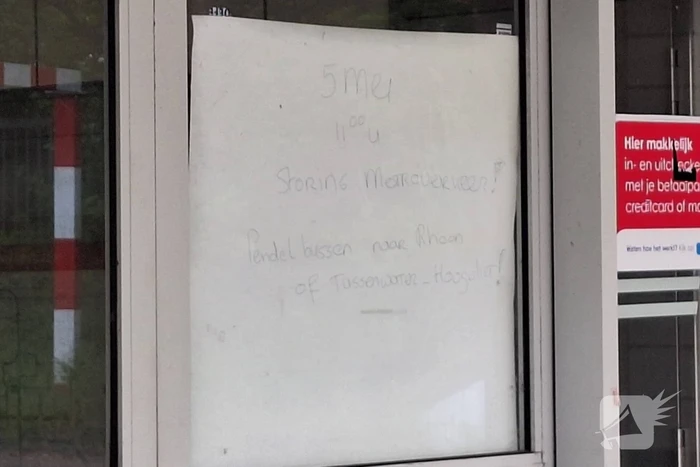 5 mei
11⁰⁰ u
Storing Metroverkeer!
Pendelbussen naar Rhoon
of Tussenwater - Hoogvliet!
Hier makkelijk
in- en uitchecke
met je betaalpa
creditcard of mo
Weten hoe het werkt?